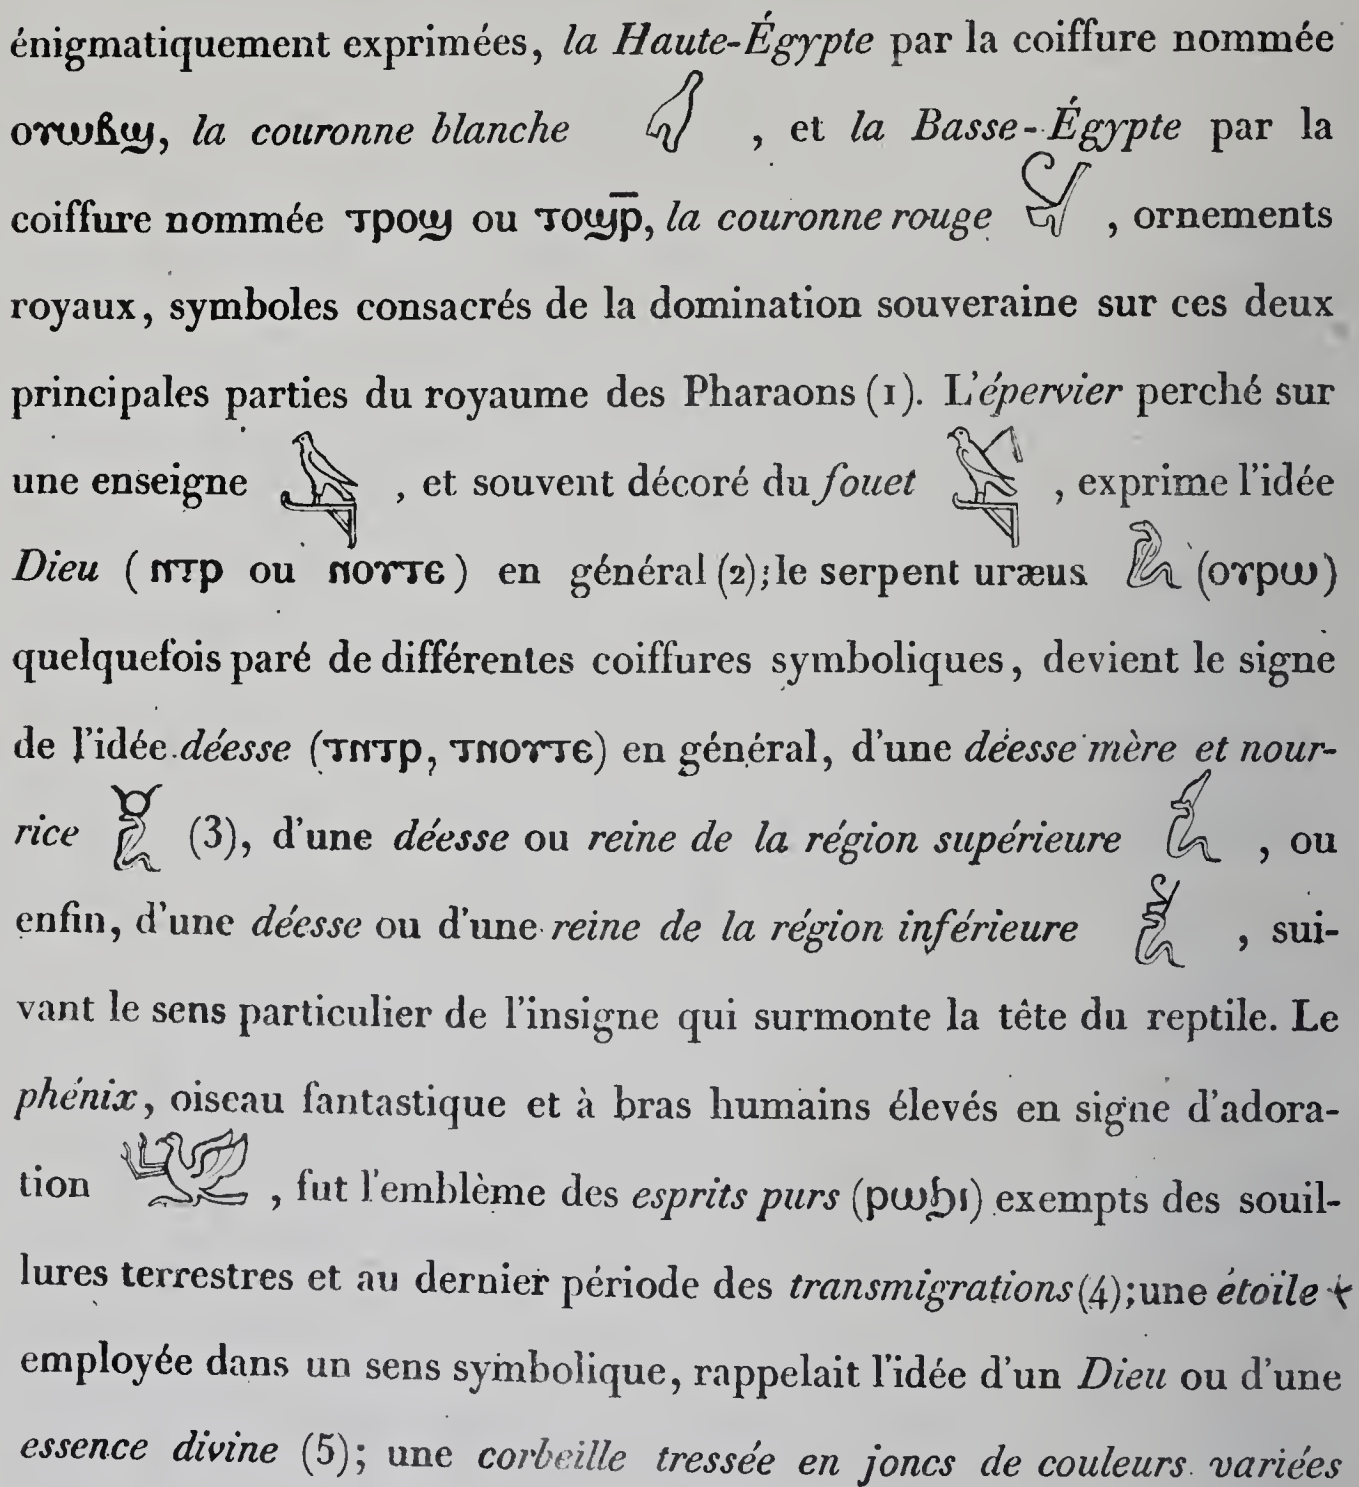 énigmatiquement exprimées, la Haute-Égypte par la coiffure nommée
ⲟⲩⲱⲃϣ, la couronne blanche 𓋑 , et la Basse-Égypte par la
coiffure nommée ⲧⲣⲟϣ ou ⲧⲟϣⲣ̄, la couronne rouge 𓋔 , ornements
royaux, symboles consacrés de la domination souveraine sur ces deux
principales parties du royaume des Pharaons (1). L'épervier perché sur
une enseigne 𓅆 , et souvent décoré du fouet , exprime l'idée
Dieu (ⲛⲧⲣ ou ⲛⲟⲩⲧⲉ) en général (2); le serpent uræus 𓆗 (ⲟⲩⲣⲱ)
quelquefois paré de différentes coiffures symboliques, devient le signe
de l'idée déesse (ⲧⲛⲧⲣ, ⲧⲛⲟⲩⲧⲉ) en général, d'une déesse mère et nour-
rice (3), d'une déesse ou reine de la région supérieure , ou
enfin, d'une déesse ou d'une reine de la région inférieure , sui-
vant le sens particulier de l'insigne qui surmonte la tête du reptile. Le
phénix, oiseau fantastique et à bras humains élevés en signe d'adora-
tion , fut l'emblème des esprits purs (ⲣⲱϧⲓ) exempts des souil-
lures terrestres et au dernier période des transmigrations (4); une étoile 𓇼
employée dans un sens symbolique, rappelait l'idée d'un Dieu ou d'une
essence divine (5); une corbeille tressée en joncs de couleurs variées